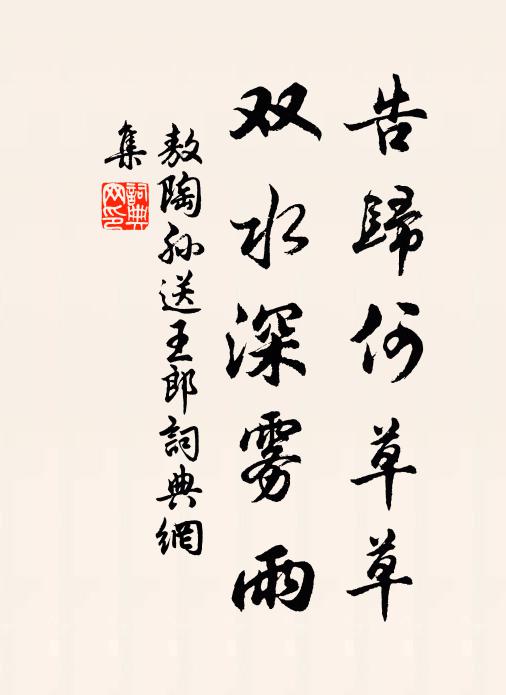 告歸何草草
双水深雾雨
敖陶孙送王郎詞典網
集
詞典網印